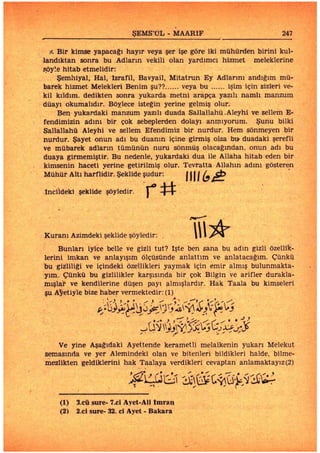 ŞEMS'ÜL - MAARIF 247
Bir kimse yapacağı hayır veya şer işe göre iki mühürden birini kul-
landıktan sonra bu Adların vekili olan yardımcı hizmet meleklerine
şöyle hitab etmelidir:
Şemhiyal, Hal, İsrafil, Bavyail, Mitatrun Ey Adlarını andığım mü-
barek hizmet Melekleri Benim şu??...... veya bu ...... işim için sizleri ve-
kil kıldım. dedikten sonra yukarda metni arapça yazılı namlı manzum
düayı okumalıdır. Böylece isteğin yerine gelmiş olur.
Ben yukardaki manzum yazılı duada Sallallahü Aleyhi ve sellem E-
fendimizin adını bir çok sebeplerden dolayı anmıyorum. Şunu bilki
Sallallahü Aleyhi ve sellem Efendimiz bir nurdur. Hem sönmeyen bir
nurdur. Şayet onun adı bu duanın içine girmiş olsa bu duadaki şerefli
ve mübarek adların tümünün nuru sönmüş olacağından, onun adı bu
duaya girmemiştir. Bu nedenle, yukardaki dua ile Allaha hitab eden bir
kimsenin haceti yerine getirilmiş olur. Tevratta Allahın adını gösteren
Mühür Altı harflidir. Şeklide şudur:
İncildeki şeklide şöyledir.
Kuranı Azimdeki şeklide şöyledir:
Bunları iyice belle ve gizli tut? İşte ben sana bu adın gizli özellik-
lerini imkan ve anlayışım ölçüsünde anlattım ve anlatacağım. Çünkü
bu gizliliği ve içindeki özellikleri yaymak için emir almış bulunmakta-
yım. Çünkü bu gizlilikler karşısında bir çok Bilgin ve arifler durakla-
mışlar ve kendilerine düşen payı almışlardır. Hak Taala bu kimseleri
şu Ayetiyle bize haber vermektedir: (1)
Ve yine Aşağıdaki Ayettende kerametli melaikenin yukarı Melekut
semasında ve yer Alemindeki olan ve bitenleri bildikleri halde, bilme-
mezlikten geldiklerini hak Taalaya verdikleri cevaptan anlamaktayız(2)
(1) 3.cü sure- 7.ci Ayet-Ali İmran
(2) 2.ci sure- 32. ci Ayet - Bakara